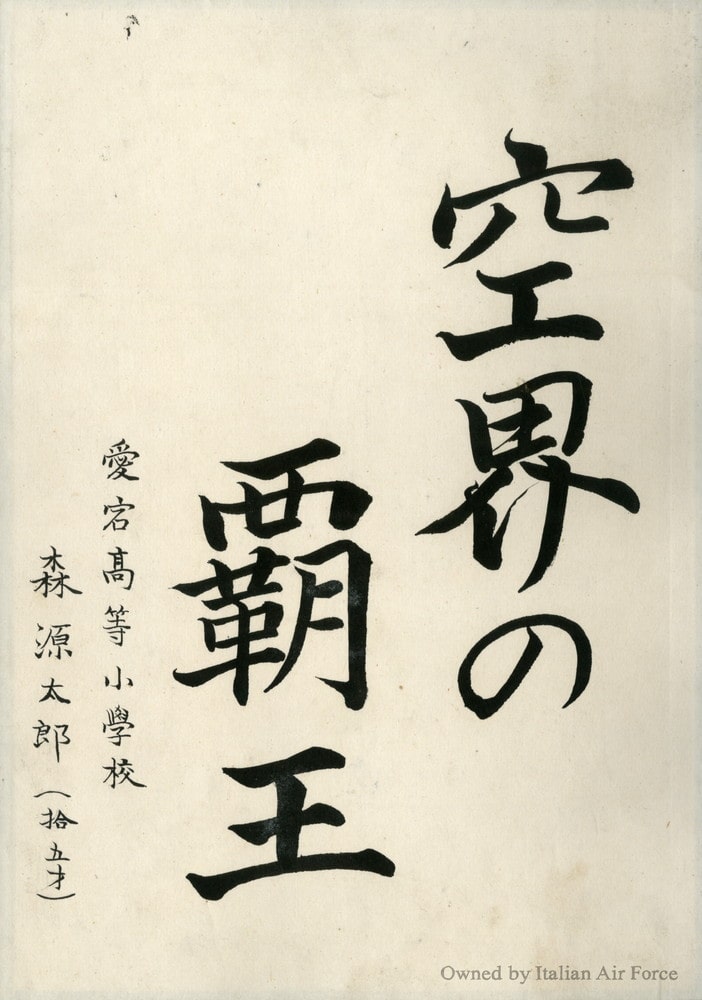 空界の
覇王
愛宕髙等小學校
森源太郎(拾五才)
Owned by Italian Air Force